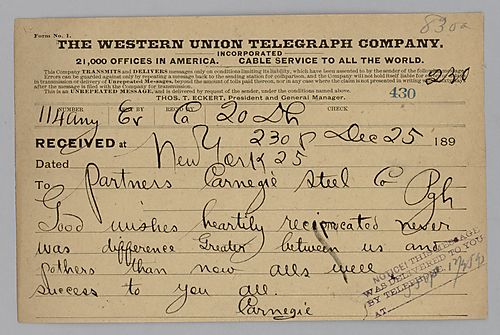 830a
Form No. 1.
THE WESTERN UNION TELEGRAPH COMPANY.
INCORPORATED
21,000 OFFICES IN AMERICA. CABLE SERVICE TO ALL THE WORLD.
This Company TRANSMITS and DELIVERS messages only on conditions limiting its liability, which have been assented to by the sender of the following message.
Errors can be guarded against only by repeating a message back to the sending station for comparison, and the Company will not hold itself liable for errors or delays
in transmission or delivery of Unrepeated Messages, beyond the amount of tolls paid thereon, nor in any case where the claim is not presented in writing
after the message is filed with the Company for transmission.
This is an UNREPEATED MESSAGE, and is delivered by request of the sender, under the conditions named above.
THOS. T. ECKERT, President and General Manager.
430
NUMBER BY REC'D BY CHECK
20
RECEIVED at 230 P Dec 25 189
Dated New York 25
To Partners Carnegie Steel Co Pgh
Good wishes heartily reciprocated never
was difference Greater between us and
others than now alls well
success to you all.
Carnegie
NOTICE: THIS MESSAGE
WAS DELIVERED TO YOU
BY TELEPHONE
AT